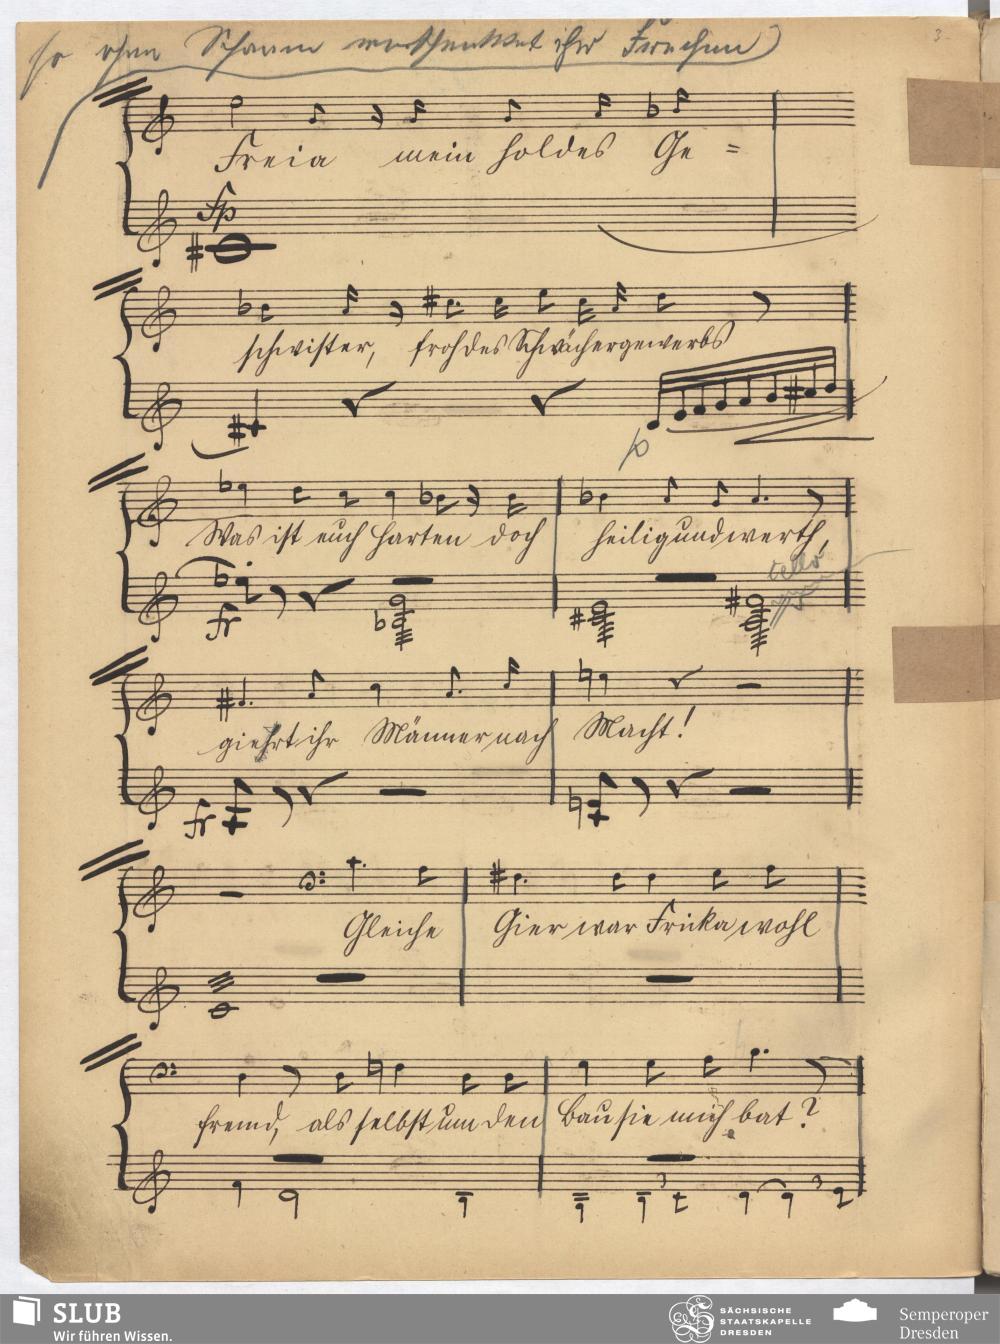 so ohne Scham verschenktet ihr Frechen
3
Freia mein holdes Ge =
fp
schwister, froh des Schächergewerbs
p
Was ist euch Harten doch heilig und werth,
fr
Cello
giert ihr Männer nach Macht!
fr
Gleiche Gier war Fricka wohl
fremd, als selbst um den Bau sie mich bat?
3 3
SLUB
Wir führen Wissen.
SÄCHSISCHE
STAATSKAPELLE
DRESDEN
Semperoper
Dresden